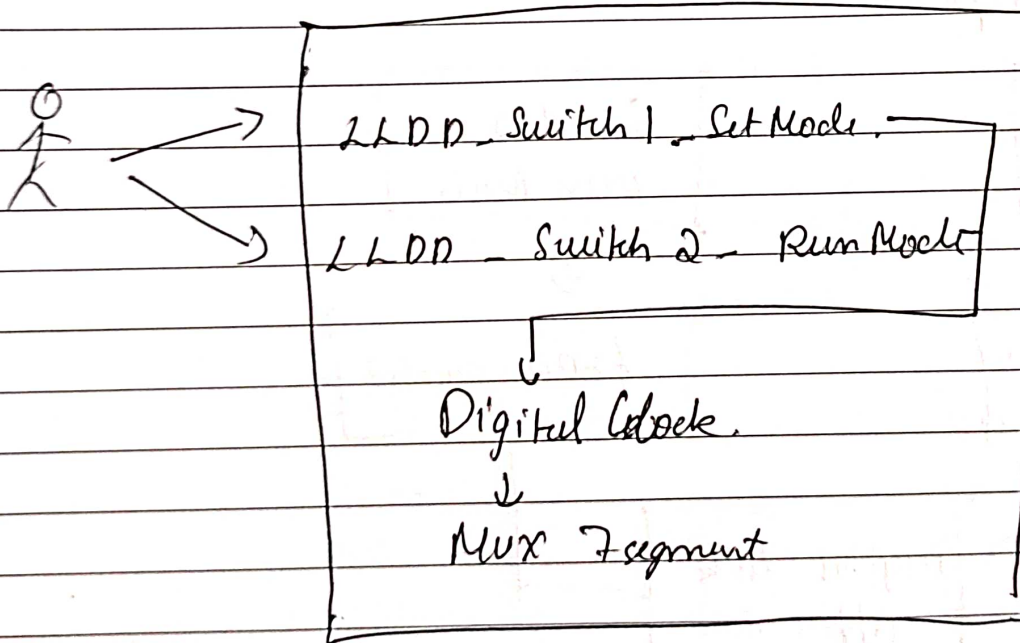 LLDD_Switch 1_Set Mode.
LLDD_Switch 2_Run Mode
Digital Clock.
Mux 7segment